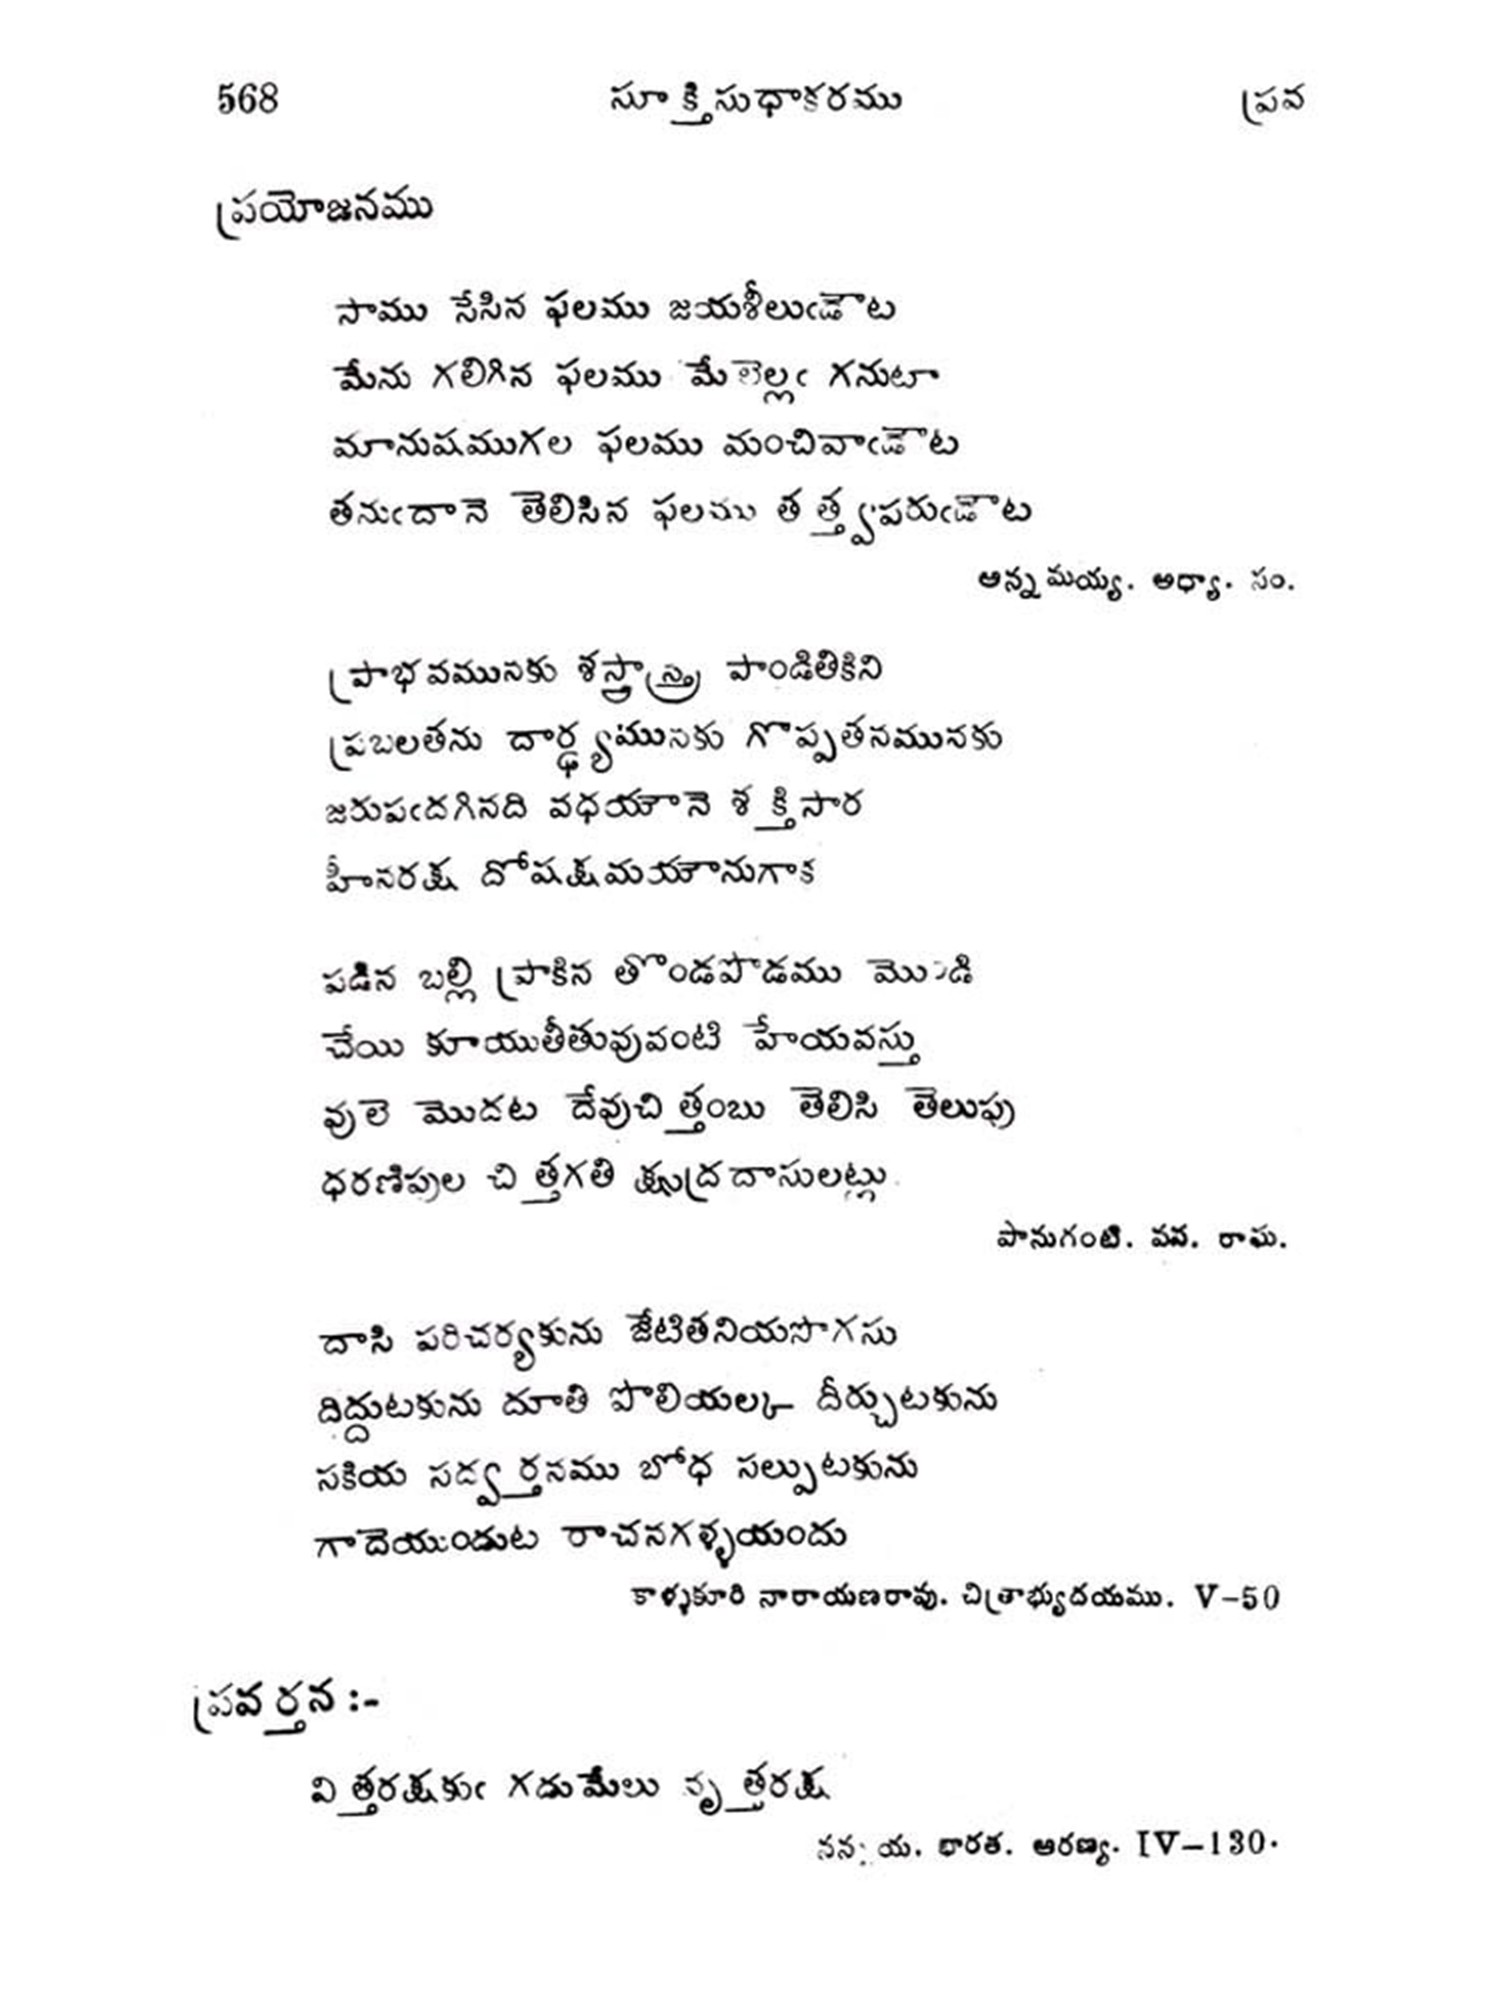 568 సూక్తిసుధాకరము ప్రవ
ప్రయోజనము
సాము సేసిన ఫలము జయశీలుఁడౌట
మేను గలిగిన ఫలము మేలెల్లఁ గనుటా
మానుషముగల ఫలము మంచివాఁడౌట
తనుఁదానె తెలిసిన ఫలము తత్త్వపరుఁడౌట
అన్నమయ్య. అధ్యా. సం.
ప్రాభవమునకు శస్త్రాస్త్ర పాండితికిని
ప్రబలతను దార్ఢ్యమునకు గొప్పతనమునకు
జరుపఁదగినది వధయౌనె శక్తిసార
హీనరక్ష దోషక్షమయౌనుగాక
పడిన బల్లి ప్రాకిన తొండపొడము మొండి
చేయి కూయుతీతువువంటి హేయవస్తు
వులె మొదట దేవుచిత్తంబు తెలిసి తెలుపు
ధరణిపుల చిత్తగతి క్షుద్రదాసులట్లు
పానుగంటి. వన. రాఘ.
దాసి పరిచర్యకును జేటితనియసొగసు
దిద్దుటకును దూతి పొలియల్క దీర్చుటకును
సకియ సద్వర్తనము బోధ సల్పుటకును
గాదెయుండుట రాచనగళ్ళయందు
కాళ్ళకూరి నారాయణరావు. చిత్రాభ్యుదయము. V-50
ప్రవర్తన :-
విత్తరక్షకుఁ గడుమేలు వృత్తరక్ష
నన్నయ. భారత. ఆరణ్య. IV-130.